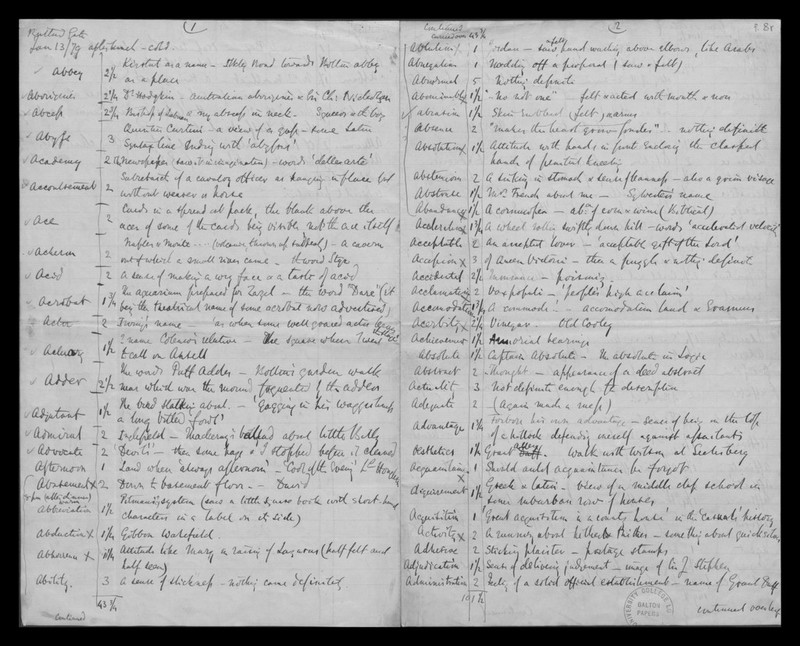 1
Rutland Gate
Jan 13/79 after lunch - cold.
Abbey 2½ Kirstall as a name - Abbey Road towards abbey
as a place
Aborigines Dr Hodgkin - Australian aborigines & Sir Ch: Nicholson
Abscess my abscess in neck. Squeers & the boy
Abyss 3 Quintus Curtius - a view of a gulf - some Latin
ending with 'abyssus'
Academy 2 Newspaper (saw it in imagination) - words 'dell arte'
Accoutrement 2 of a cavalry officer as hanging in place but
without wearer or horse
Ace 2 Cards in a spread out pack, the blank above the
aces of some of the cards being visible not the ace itself
Acheron 2 Naples - a cavern
out of which a small river came. word Styx
Acid 2 A sense of making a wry face as a taste of acid
Acrobat 1½ The aquarium prepared for Zazel - the word "Dare" (it
being the theatrical name of some acrobat now advertised)
Actor 2 Irving's name - as when some well graced actor
Actuary 1½ relation - the square where I went
to call on Ansell
Adder 2½ The words Puff Adder - garden walk
near which was the mound frequented by the adders
Adjutant 1½ The bird stalking about. - 'Gagging in his waggishness
a long billed fowl'
Admiral 2 Inglefield - Thackeray's ballad about little Billy
Advocate 2 Devil's - then some bags
Afternoon 1 Land where 'always afternoon' -
Abasement 2 Down to basement floor. -
Abbreviation 1½ Pitman's system (saw a little square book with short-hand
characters in a label on its side)
Abduction 1½ Gibbon Wakefield.
Abhorrence 1½ Attitude like Mary in raising of Lazarus (half felt and
half seen)
Ability. 3 A sense of slickness - nothing came definitely
43½
continued
2
continued
43½
Ablution 1 Jordan - saw & felt hand washing above elbows, like Arabs
Abnegation 1 Nodding off a proposal (saw & felt)
Abnormal 5 Nothing definite
Abominable 1½ "no not one" felt & acted with mouth & nose
Abrasion 1½ Skin rubbed, felt
Absence 2 "makes the heart grow fonder" .. nothing definite
Absolution 1½ Attitude with hands in front enclosing the clasped
hands of penitent kneeling
Abstemious 2 A sinking in stomach & sense of - also a grim visage
Abstruse 1½ Mrs French about me - name
Abundance 1½ A cornucopia - also of corn & wine (biblical)
Acceleration 1½ A wheel rolling swiftly down hill - words 'accelerated velocity'
Acceptable 2 an accepted lover - 'acceptable gift of the Lord'
Accession 3 of Queen Victoria - then a struggle & nothing definite
Accidental 2½ - poisoning.
Acclamation 2 Vox populi - 'people's high acclaim'
Accomodation A commode! - accomodation land & Erasmus
Acerbity 2½ Vinegar. Old
Achievement 1½ Armorial bearings
Absolute 1½ Captain Absolute - the absolute in Logic
Abstract 2 Thought - appearance of a deed abstract
Actualist 3 Not definite enough for description
Adequate 2 - (again made a mess)
Advantage 1½ Forbore his own advantage - sense of being on the top
of a hillock defending oneself against assailants
Aesthetics 1½ Grant Allen walk with
Acquaintance 1 Should auld acquaintance be forgot
Acquirement 1½ Greek & Latin - view of a middle class school in
some suburban row of houses
Acquisition 1 'Great acquisition in a county house'
Activity 2 A running about hither & thither - something about quicksilver
Adhesive 2 Sticking plaster - postage stamps
Adjudication 1½ sense of delivering judgement - image of Sir J Stephen
Administration 2 of a solid official establishment - name of Grant Duff
101½
continued overleaf
UNIVERSITY COLLEGE
GALTON
PAPERS